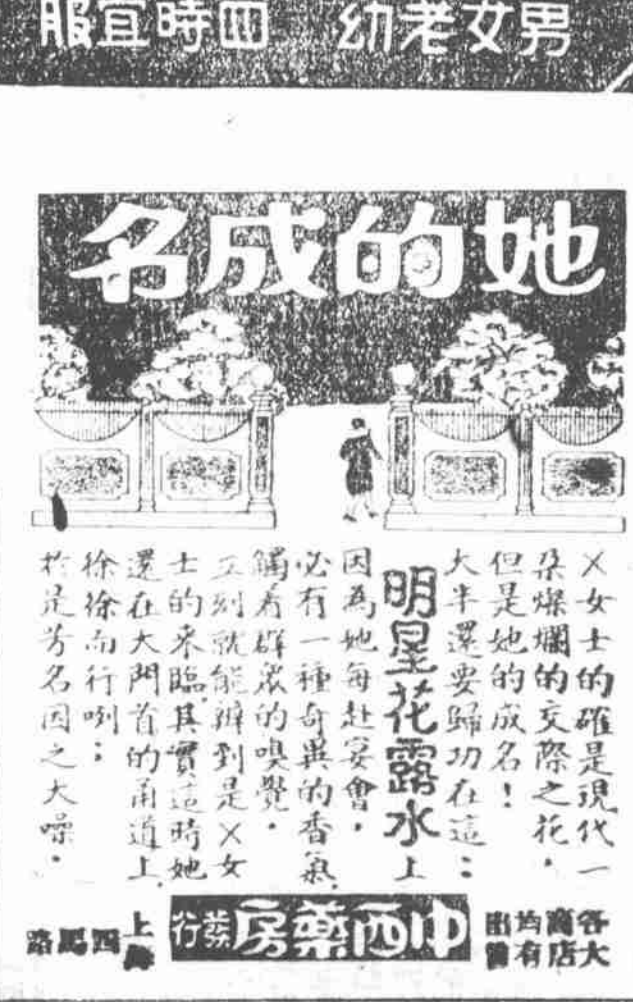 男女老幼 四時宜服
她的成名
X女士的確是現代一
朵燦爛的交際之花,
但是她的成名!
大半還要歸功在這:
明星花露水上
因為她每赴宴會,
必有一種奇異的香氣,
觸着群眾的嗅覺.
立刻就能辨到是X女
士的來臨.其實這時她
還在大門首的甬道上,
徐徐而行咧;
於是芳名因之大噪.
各大商店均有出售
中西藥房發行
上海四馬路